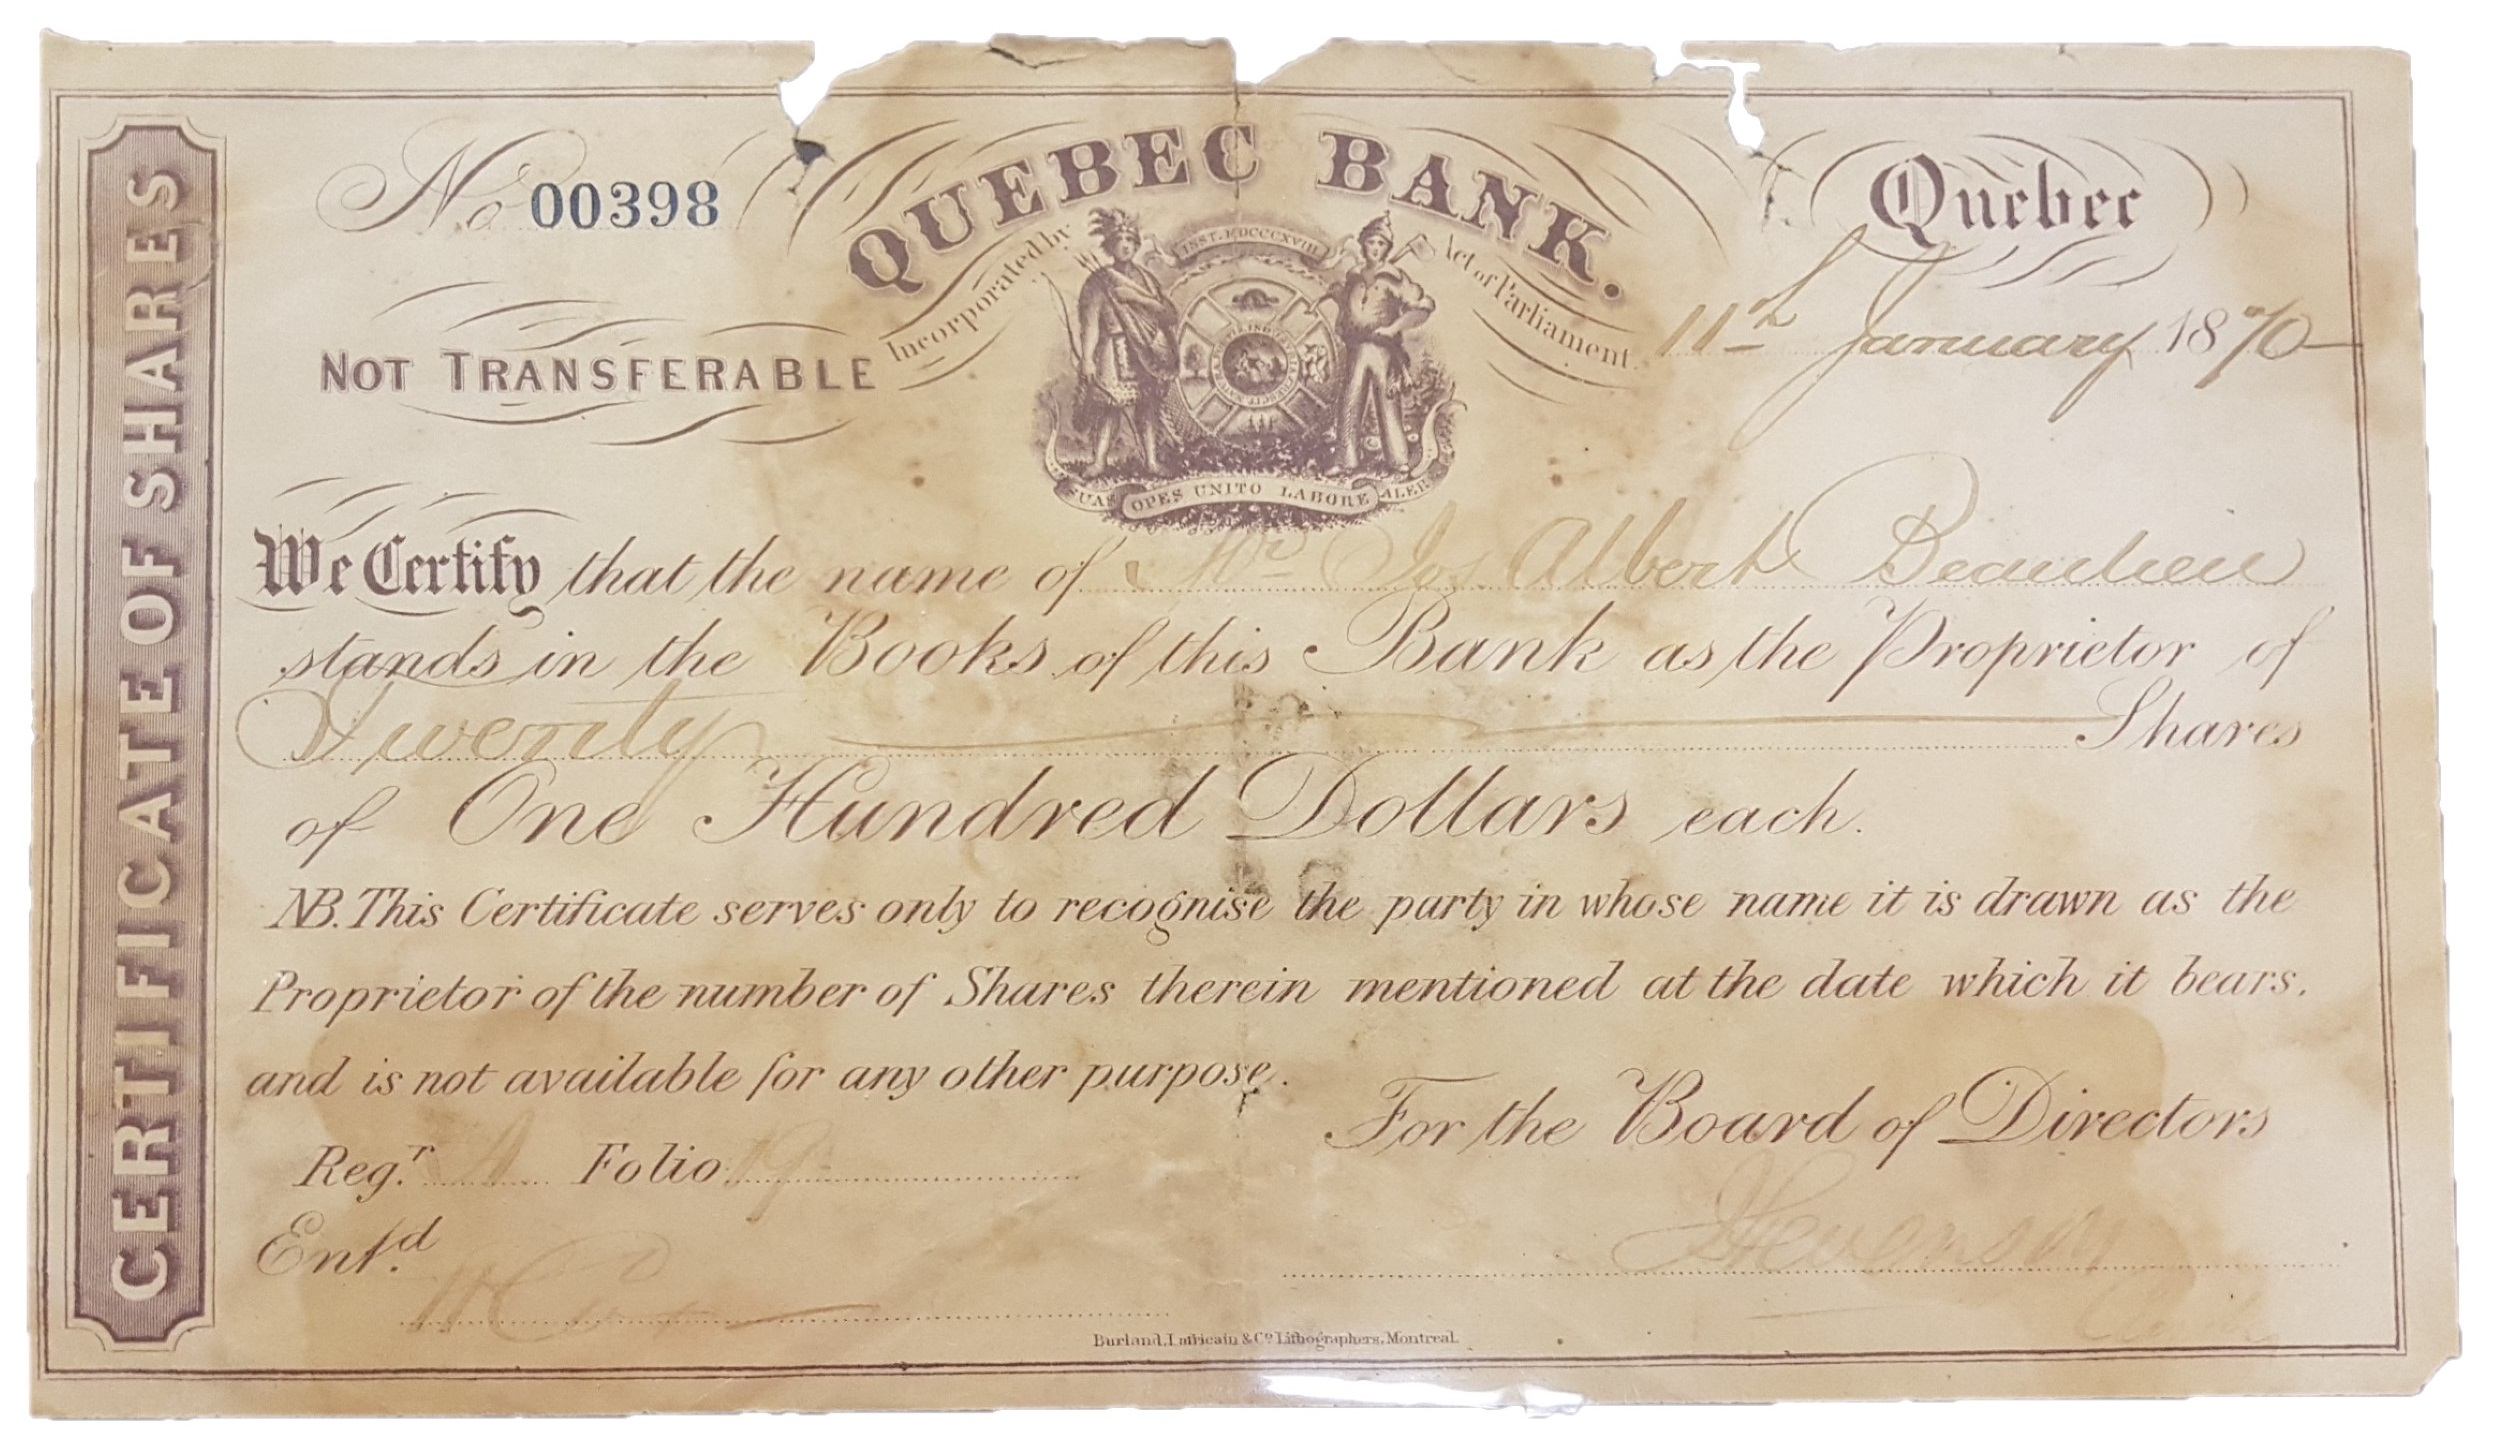 CERTIFICATE OF SHARES
No 00398
QUEBEC BANK.
Quebec
Incorporated by Act of Parliament
INST. MDCCCXVIII
11th January 1870
NOT TRANSFERABLE
OPES UNITO LABORE
We Certify that the name of Mr Jos Albert Beaulieu
stands in the Books of this Bank as the Proprietor of
Twenty Shares
of One Hundred Dollars each.
NB. This Certificate serves only to recognise the party in whose name it is drawn as the
Proprietor of the number of Shares therein mentioned at the date which it bears,
and is not available for any other purpose.
For the Board of Directors
Reg.r A Folio 19
JStevenson
Ent.d
Burland, Lafricain & Co Lithographers, Montreal.